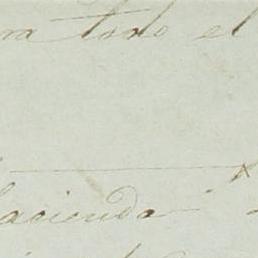 ra todo el
hacienda